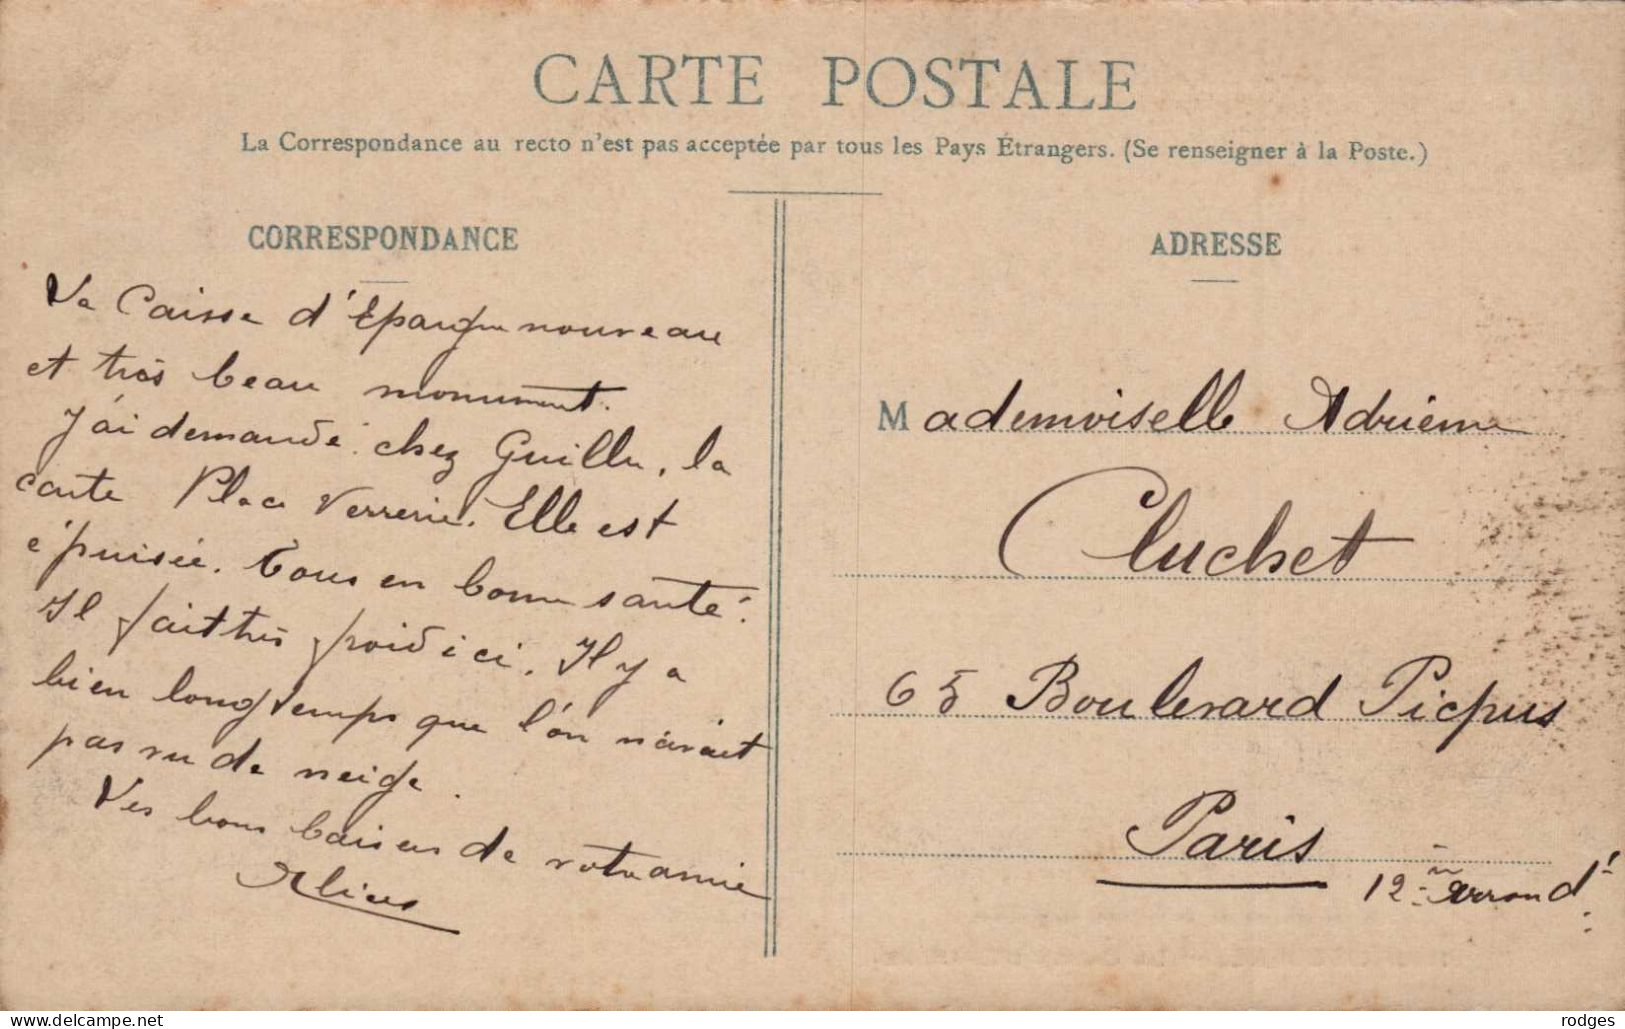 CARTE POSTALE
La Correspondance au recto n'est pas acceptée par tous les Pays Étrangers. (Se renseigner à la Poste.)
CORRESPONDANCE
La Caisse d'Epargne nouveau
et très beau monument.
J'ai demandé chez Guillu, la
carte Place Verrerie. Elle est
épuisée. Tous en bonne santé.
Il fait très froid ici. Il y a
bien longtemps que l'on n'avait
pas vu de neige.
Mes bons baisers de votre amie
ADRESSE
Mademoiselle Adrienne
Cluchet
65 Boulevard Picpus
Paris
12 arrond!
rodges